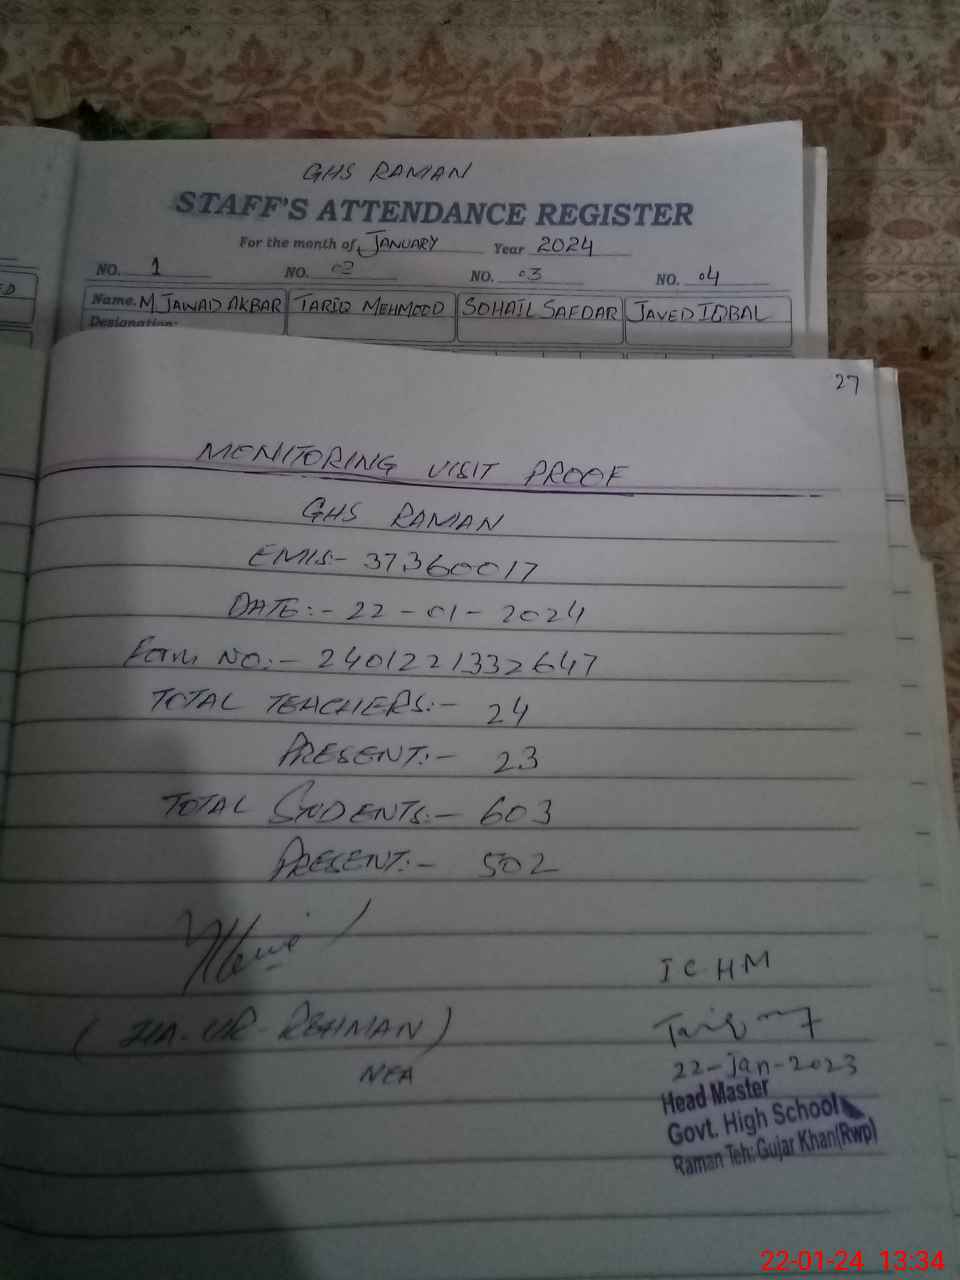 GHS RAMAN
STAFF'S ATTENDANCE REGISTER
For the month of JANUARY Year 2024
NO. 1 NO. 02 NO. 03 NO. 04
Name. M JAWAD AKBAR TARIQ MEHMOOD SOHAIL SAFDAR JAVED IQBAL
Designation:
27
MONITORING VISIT PROOF
GHS RAMAN
EMIS:- 37360017
DATE:- 22-01-2024
Form NO:- 2401221332647
TOTAL TEACHERS:- 24
PRESENT:- 23
TOTAL STUDENTS:- 603
PRESENT:- 502
I C HM
(ZIA-UR-REHMAN)
MEA
22-Jan-2023
Head Master
Govt. High School
Raman Teh: Gujar Khan(Rwp)
22-01-24 13:34